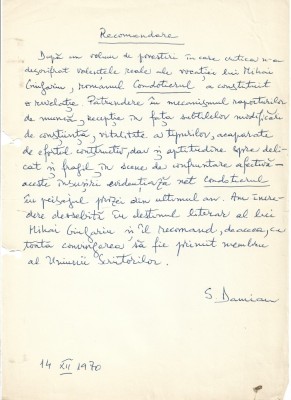 Recomandare
După un volum de povestiri în care critica n-a
descifrat valențele reale ale vocației lui Mihai
Giugariu, romanul Condotierul a constituit
o revelație. Pătrundere în mecanismul raporturilor
de muncă, receptiv în fața subtilelor modificări
de conștiință, vitalitate a tipurilor, acaparate
de efortul constructiv, dar și aptitudine spre deli-
cat și fragil în scene de confruntare afectivă —
aceste însușiri evidențiază net Condotierul
în peisajul prozei din ultimul an. Am încre-
dere deosebită în destinul literar al lui
Mihai Giugariu și îl recomand, de aceea, cu
toată convingerea să fie primit membru
al Uniunii Scriitorilor.
S. Damian
14 XII 1970